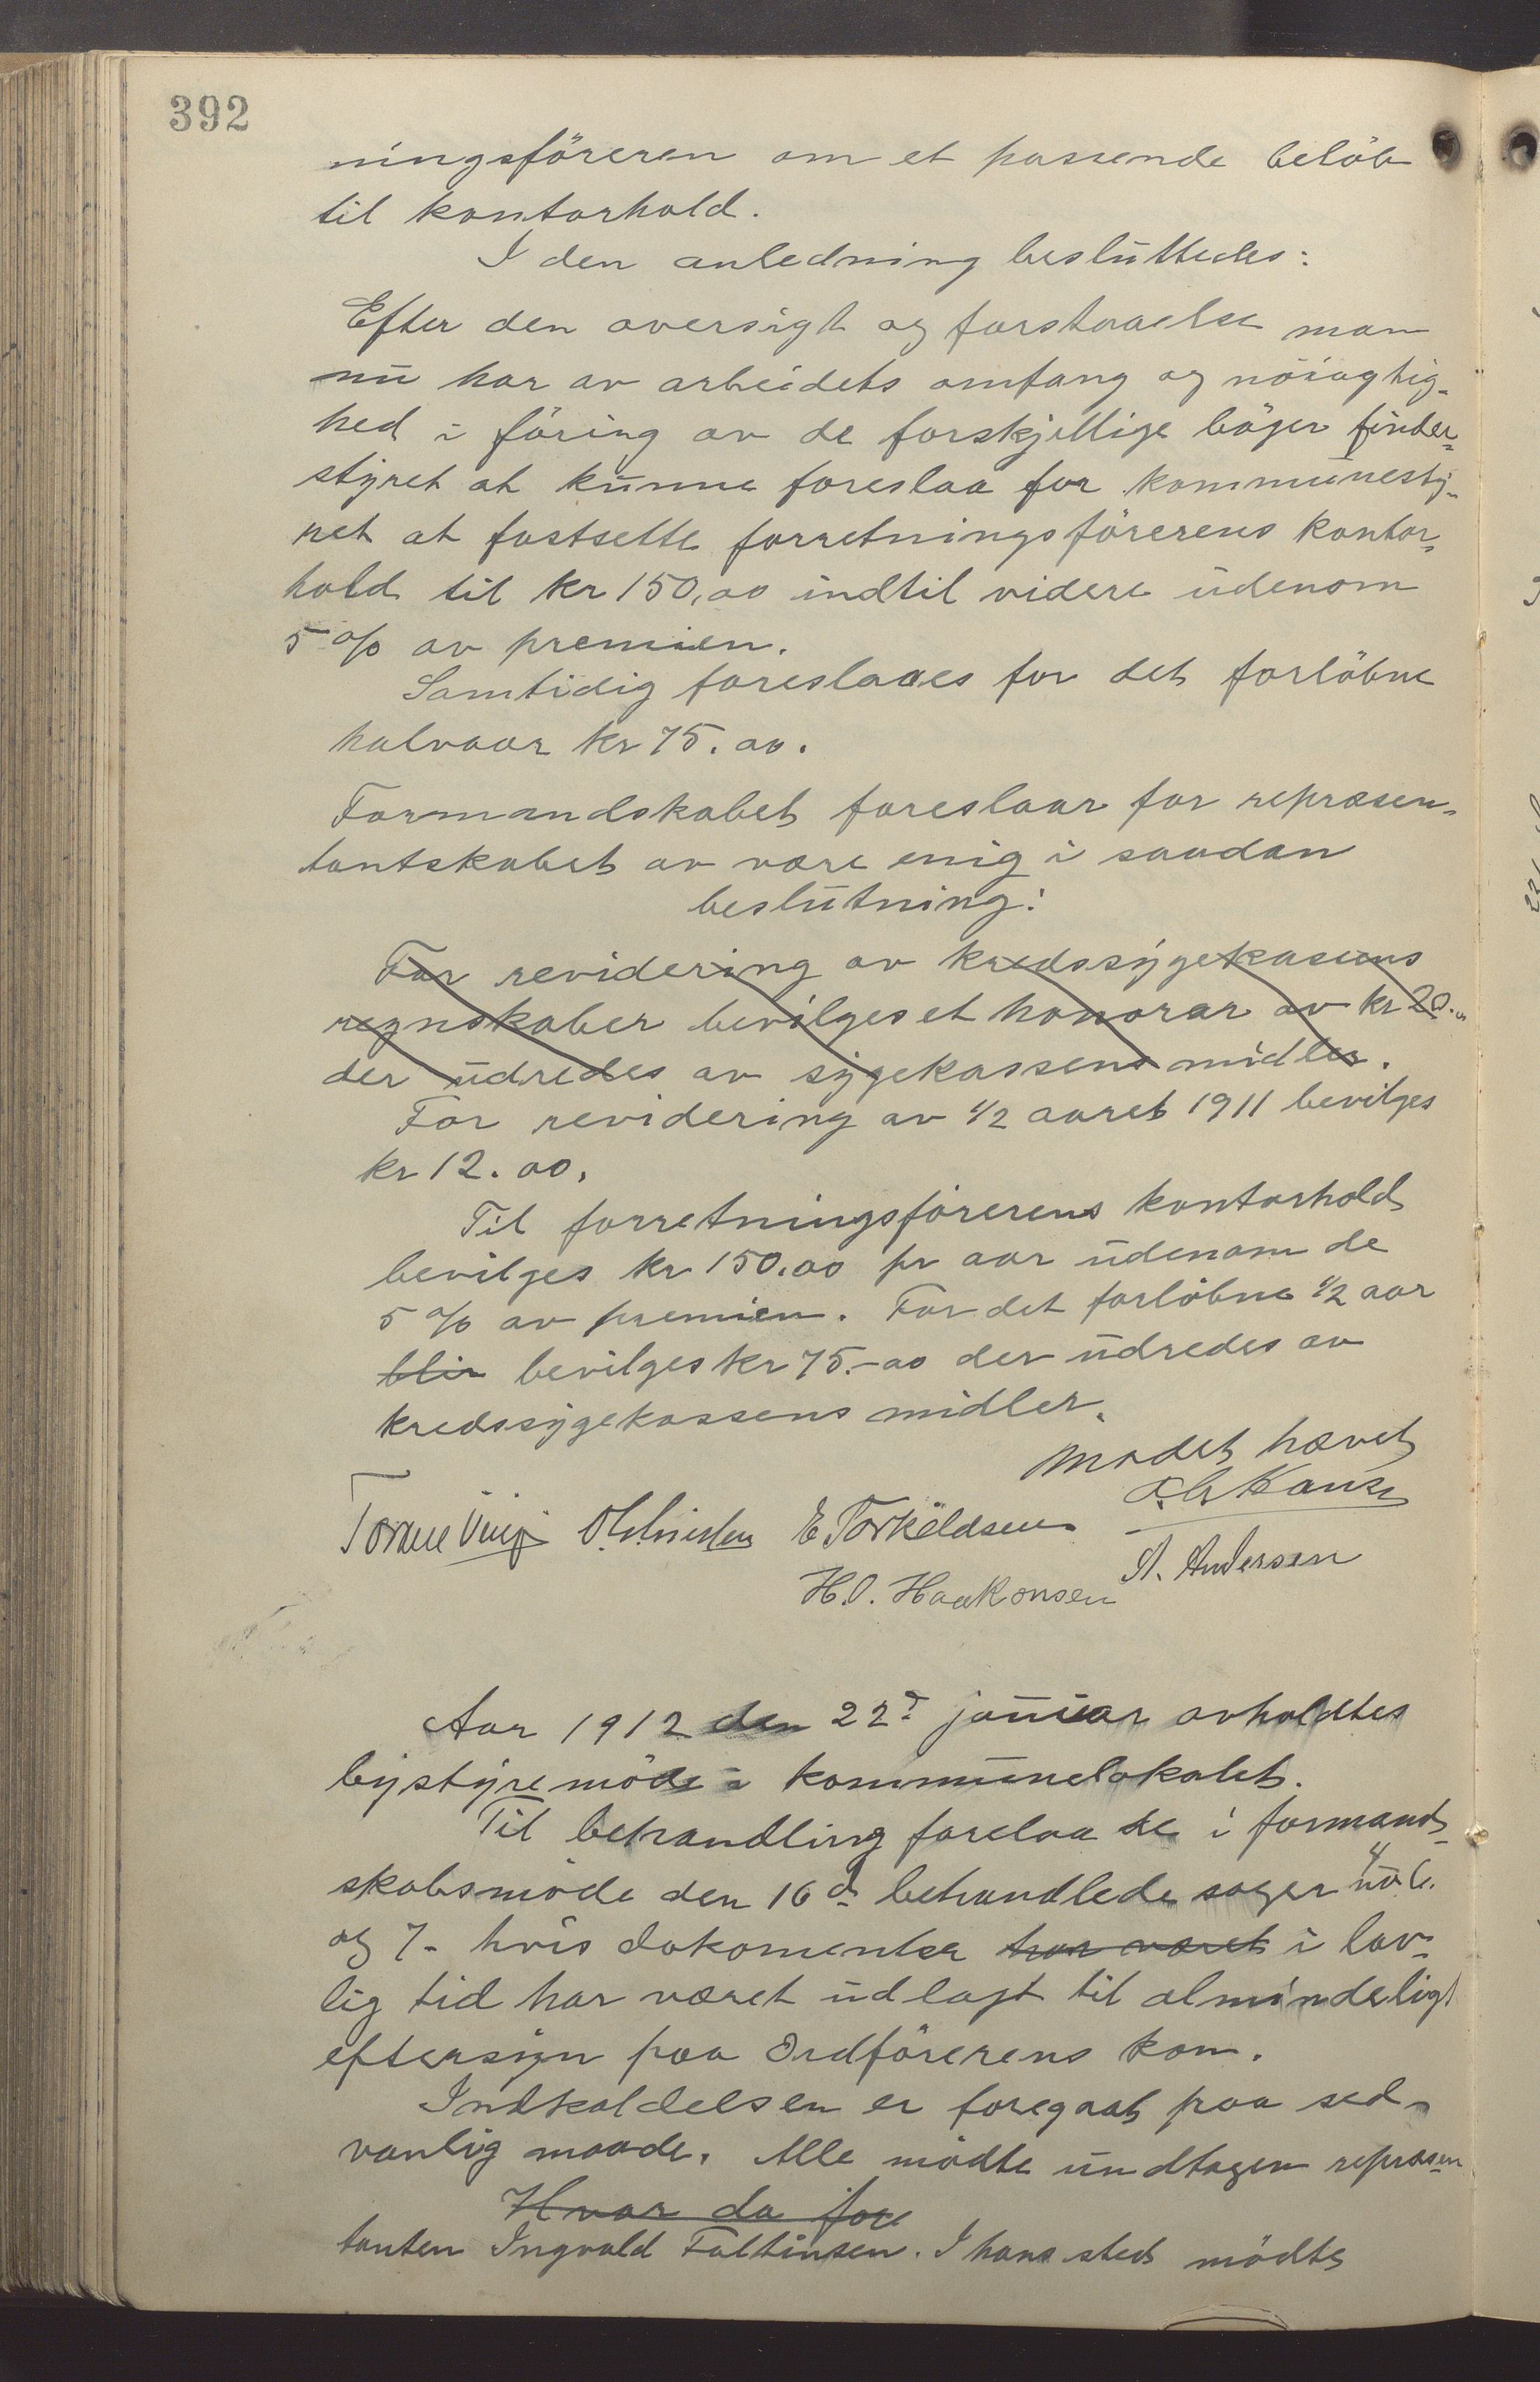 392
ningsföreren om et passende belöb
til kontorhold.
I den anledning besluttedes:
Efter den oversigt og forstaaelse man
nu har av arbeidets omfang og nöiagtig-
hed i föring av de forskjellige böger finder
styret at kunne foreslaa for kommunesty-
ret at fastsette forretningsförerens kontor-
hold til kr 150,00 indtil videre udenom
5 % av premien.
Samtidig foreslaaes for det forlöbne
halvaar kr 75.00.
Formandskabet foreslaar for repræsen-
tantskabet av være enig i saadan
beslutning:
For revidering av kredssygekasens
regnskaber bevilges et honorar av kr 20.
der udredes av sygekassens midler.
For revidering av 1/2 aaret 1911 bevilges
kr 12.00.
Til forretningsförerens kontorhold
bevilges kr 150.00 pr aar udenom de
5 % av premien. For det forlöbne 1/2 aar
blir bevilges kr 75.-00 der udredes av
kredssygekassens midler.
Mødet hævet
E Torkildsen
A. Andersen
H.O. Haakonsen
Aar 1912 den 22d januar avholdtes
bystyremöde i kommunelokalet.
Til behandling forelaa de i formand-
skabsmöde den 16 ds behandlede sager 4
og 7- hvis dokomenter har været i lov-
lig tid har været udlagt til almindeligt
eftersyn paa Ordförerens kon.
Indkaldelsen er foregaat paa sed-
vanlig maade. Alle mödte undtagen repræsen
Hvor da fore
tanten Ingvald Faltinsen. I hans sted mödte